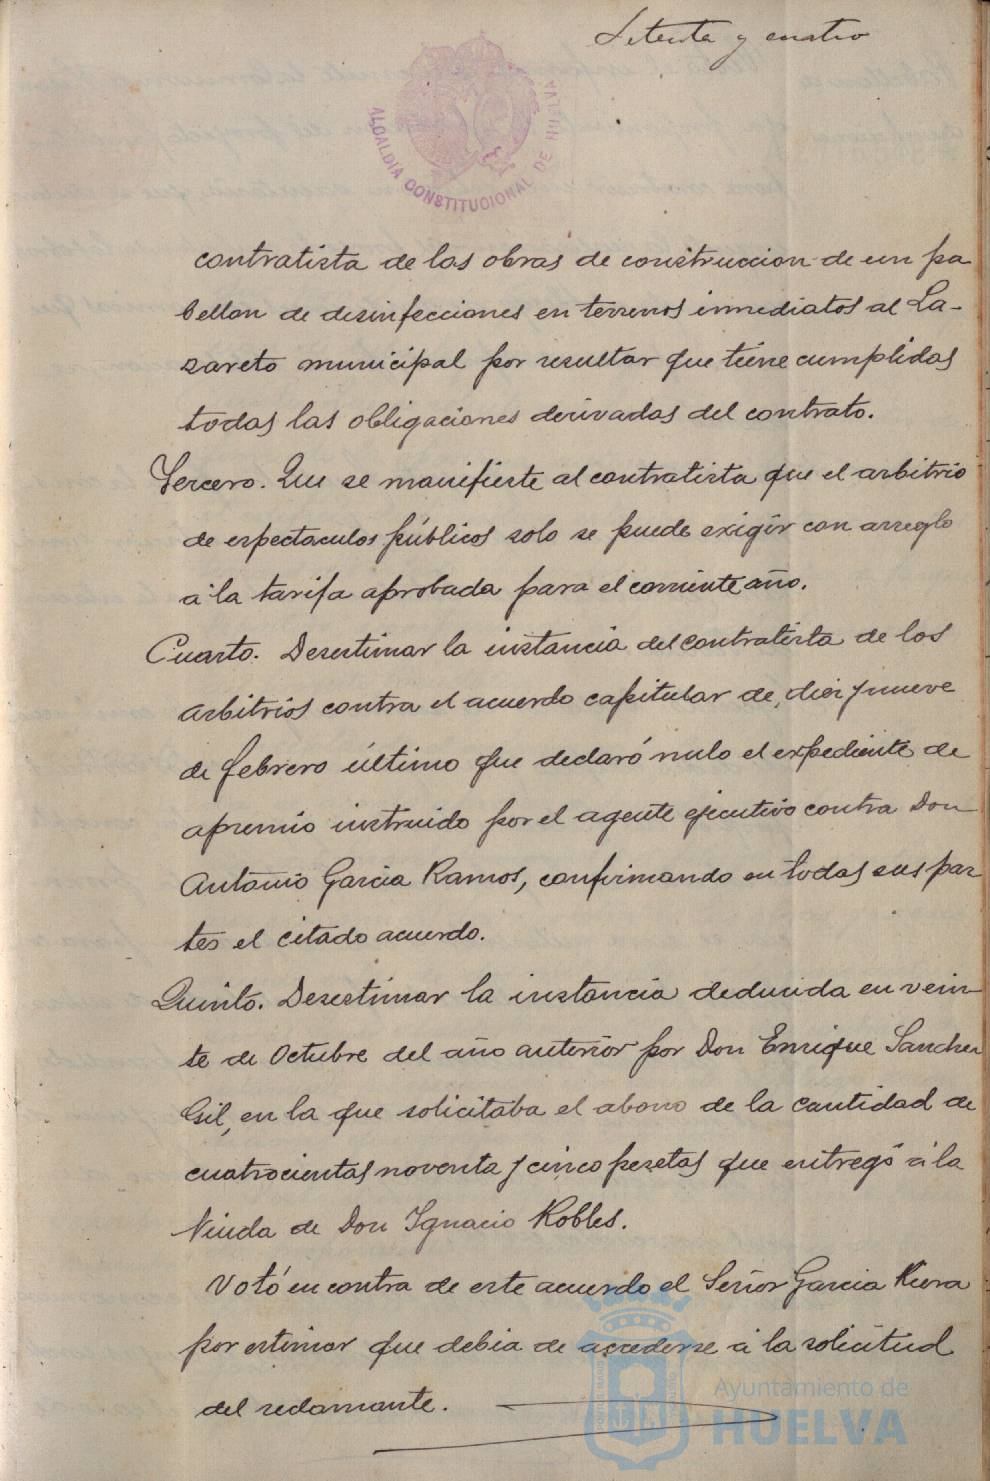 Setenta y cuatro
ALCALDIA CONSTITUCIONAL DE HUELVA
contratista de las obras de construccion de un pa
bellon de desinfecciones en terrenos inmediatos al La-
zareto municipal por resultar que tiene cumplidas
todas las obligaciones derivadas del contrato.
Tercero. Que se manifieste al contratista que el arbitrio
de espectaculos públicos solo se puede exigir con arreglo
á la tarifa aprobada para el corriente año.
Cuarto. Desestimar la instancia del contratista de los
arbitrios contra el acuerdo capitular de diez y nueve
de febrero último que declaró nulo el expediente de
apremio instruido por el agente ejecutivo contra Don
Antonio Garcia Ramos, confirmando en todas sus par
tes el citado acuerdo.
Quinto. Desestimar la instancia deducida en vein-
te de Octubre del año anterior por Don Enrique Sanchez
Gil, en la que solicitaba el abono de la cantidad de
cuatrocientas noventa y cinco pesetas que entregó á la
Viuda de Don Ignacio Robles.
Votó en contra de este acuerdo el Señor Garcia
por estimar que debia de accederse á la solicitud
del reclamante.
Ayuntamiento de
HUELVA